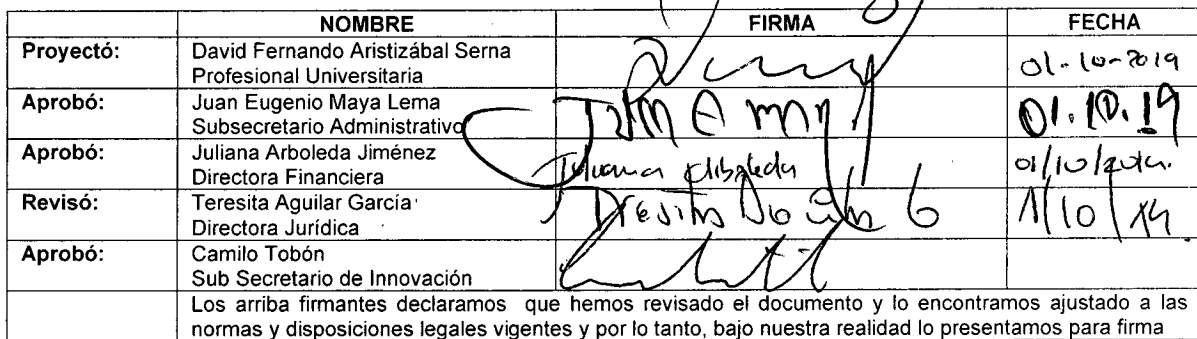 NOMBRE FIRMA FECHA
Proyectó: David Fernando Aristizábal Serna
Profesional Universitaria
01-10-2019
Aprobó: Juan Eugenio Maya Lema
Subsecretario Administrativo
01.10.19
Aprobó: Juliana Arboleda Jiménez
Directora Financiera
Juliana Arboleda
01/10/2019.
Revisó: Teresita Aguilar García
Directora Jurídica
1/10/19
Aprobó: Camilo Tobón
Sub Secretario de Innovación
Los arriba firmantes declaramos que hemos revisado el documento y lo encontramos ajustado a las
normas y disposiciones legales vigentes y por lo tanto, bajo nuestra realidad lo presentamos para firma